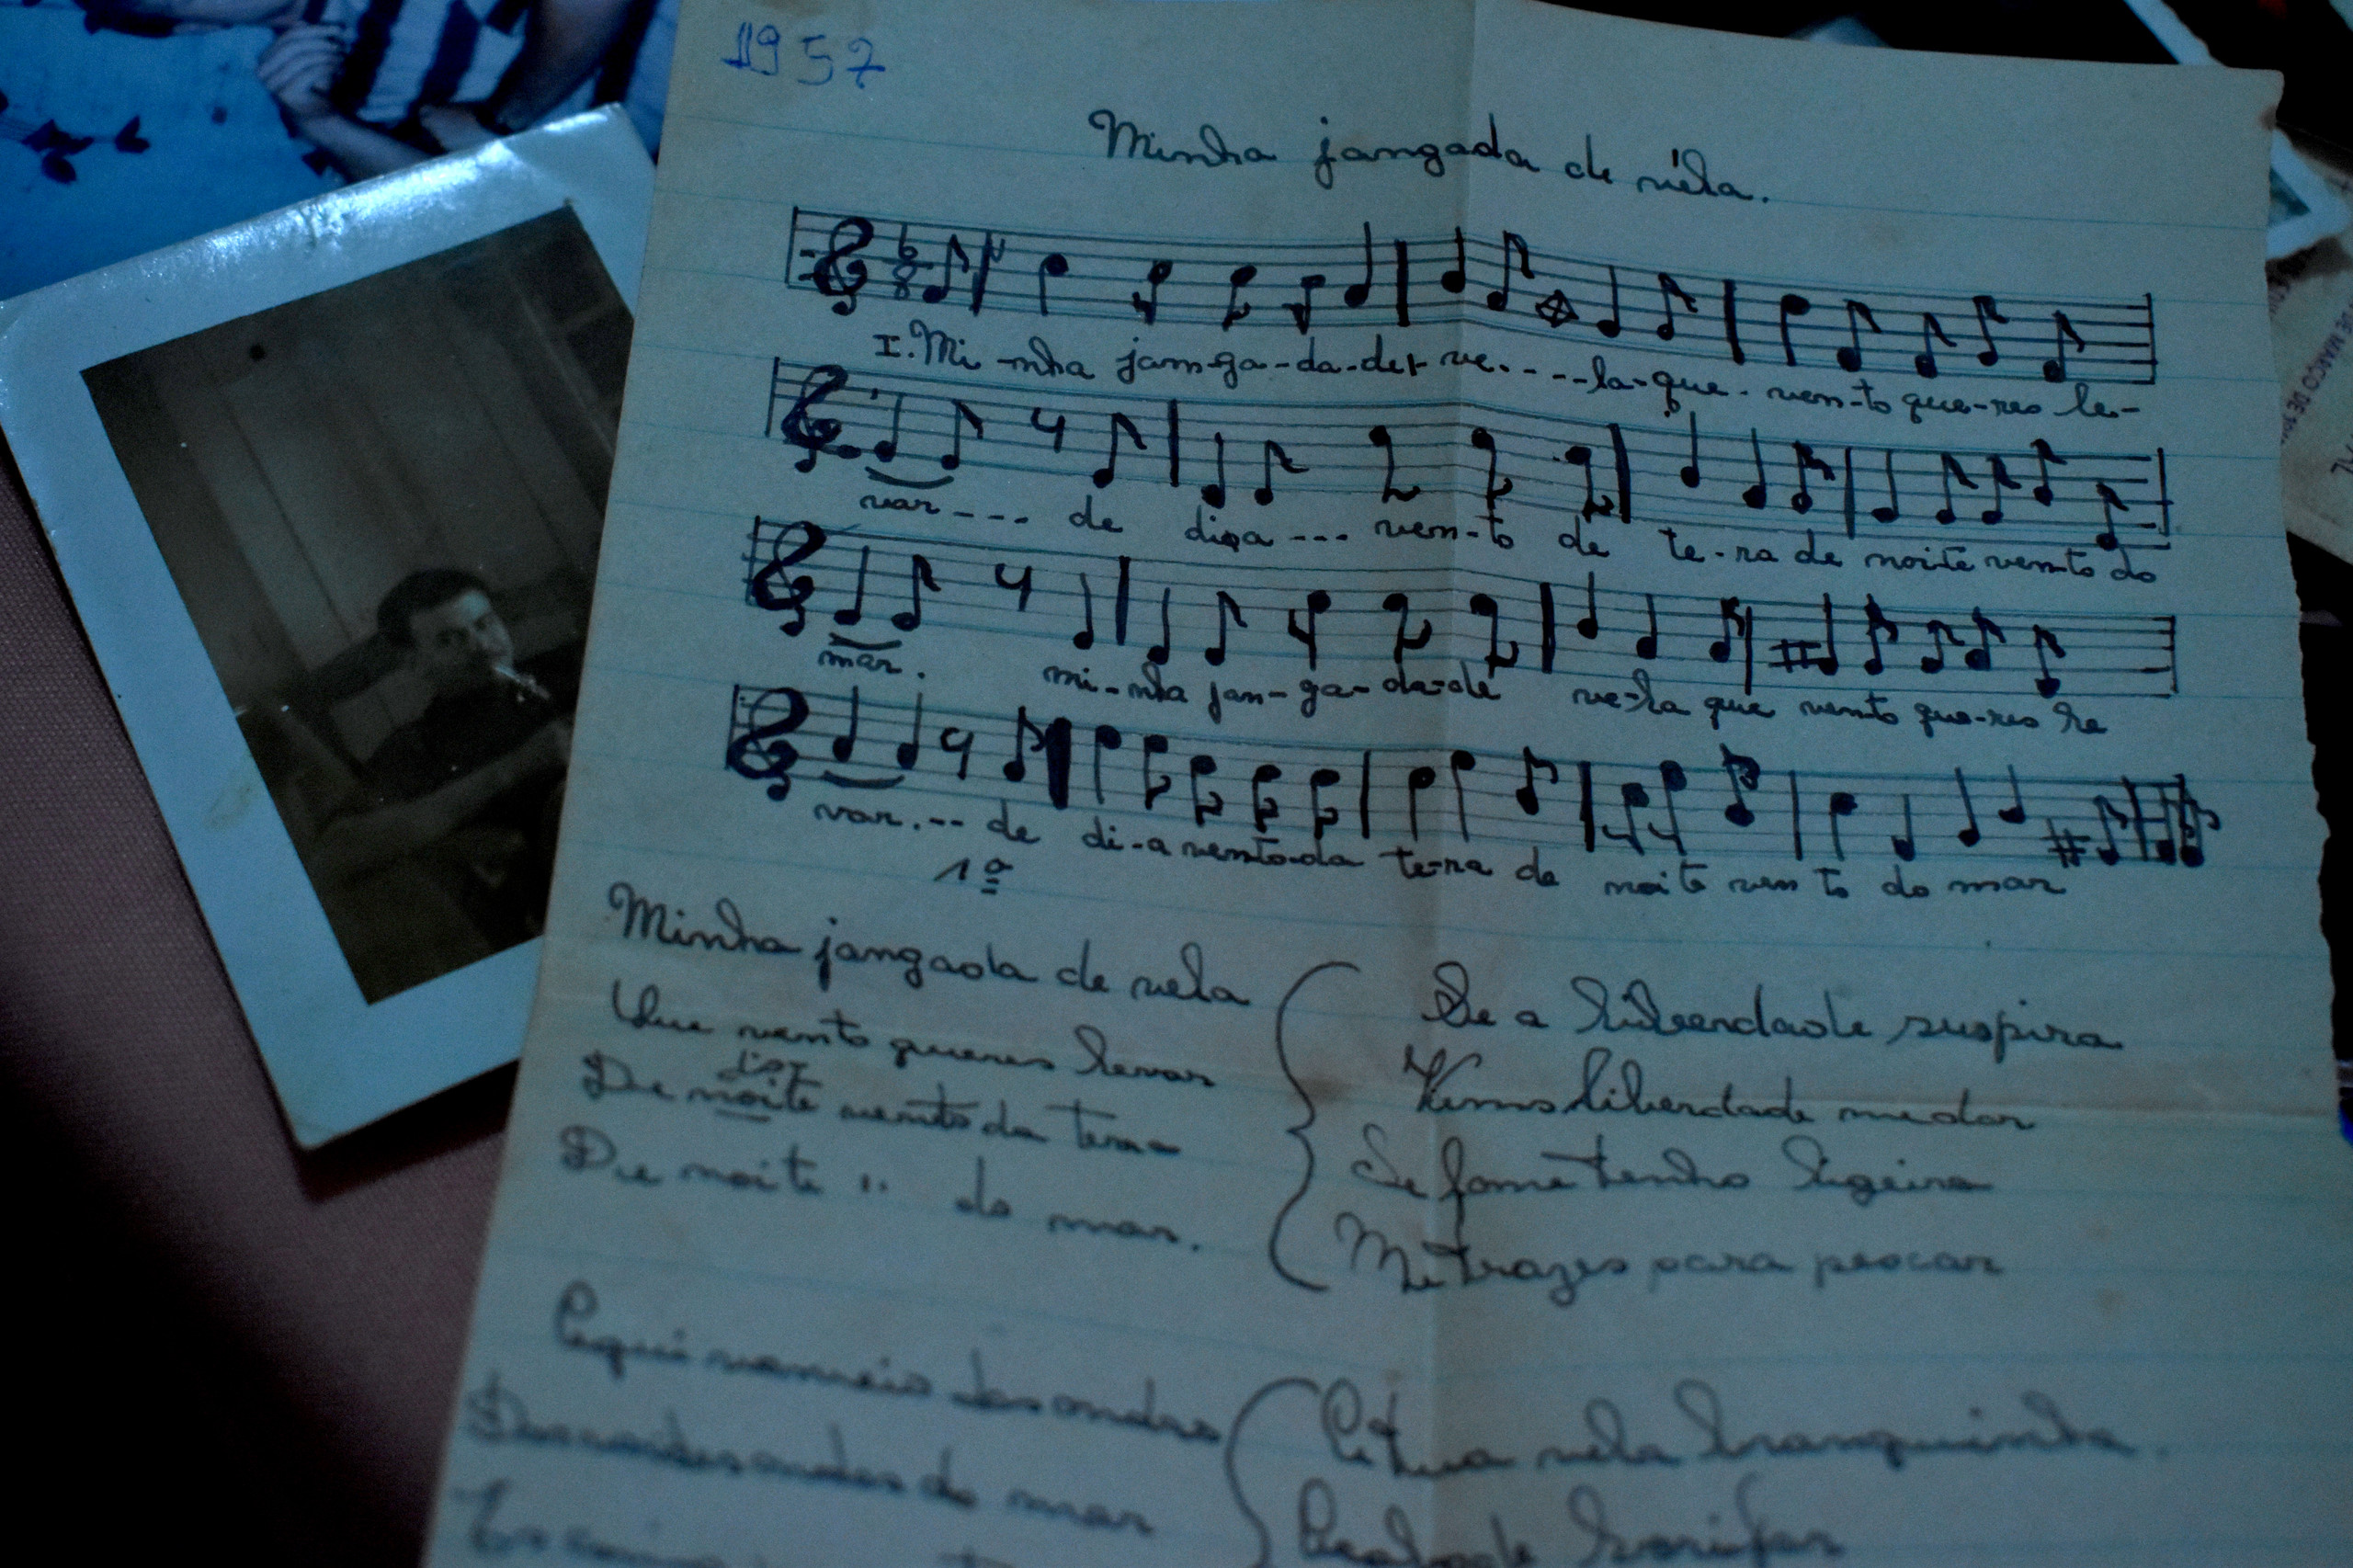 1957
Minha jangada de véla.
6
8
I. Mi-nha jan-ga-da-de ve....la-que-ven-to que-res le-
var --- de dia --- ven-to de te-ra de noite vento do
mar. mi-nha jan-ga-da-de ve-la que vento que-res le
var.-- de di-a vento-da te-ra de noite ven to do mar
1º
Minha jangada de vela
Que vento queres levar
dia
De noite vento da terra
De noite " do mar.
Se a liberdade suspira
Vens liberdade me dar
Se fome tenho ligeira
Me trazes para pescar
Aqui no meio das ondas
Das verdes ondas do mar
A tua vela branquinha
MARÇO DE